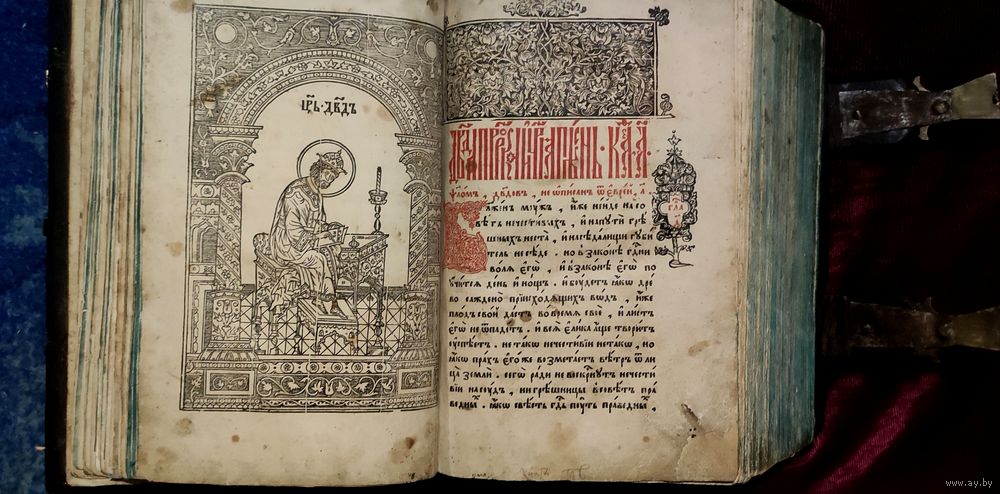 ЦР҃Ь · ДВ҃ДЪ
ДВ҃ДА ПРР҃ОКА И ЦР҃Я ПѢСНЬ · КАѲ · А҃ ·
ѱало́мъ , дв҃довъ , не ѡ҆писанъ ѿ є҆врє́й , а҃
Бл҃же́нъ мꙋ́жъ , и҆́же не и҆́де на со
вѣ́тъ нечести́выхъ , и҆ на пꙋти́ грѣ́
шныхъ не ста̀ , и҆ на сѣда́лищи гꙋби́
тель не сѣ́де . но в̾ зако́не гд҃ни
во́лѧ є҆гѡ̀ , и҆ в̾ зако́нѣ є҆гѡ̀ по
ꙋчи́тсѧ де́нь и҆ но́щь . и҆ бꙋ́детъ ꙗ҆́кѡ дре́
во саждено̀ при и҆схо́дѧщихъ во́дъ , и҆́же
пло́дъ сво́й да́стъ во вре́мѧ своѐ , и҆ ли́стъ
є҆гѡ̀ не ѿпаде́тъ . и҆ всѧ̀ є҆ли́ка а҆́ще твори́тъ
ᲂу҆спѣ́етъ . не та́кѡ нечести́вїи не та́кѡ , но
ꙗ҆́кѡ пра́хъ є҆го́же возмета́етъ вѣ́тръ ѿ ли
ца̀ землѝ . сегѡ̀ ра́ди не воскре́снꙋтъ нечести́
вїи на сꙋ́дъ , ни грѣ́шницы в̾ совѣ́тъ пра́
ведныхъ . ꙗ҆́кѡ свѣ́сть гд҇ь пꙋ́ть пра́ведныхъ ,
гла
www.ay.by